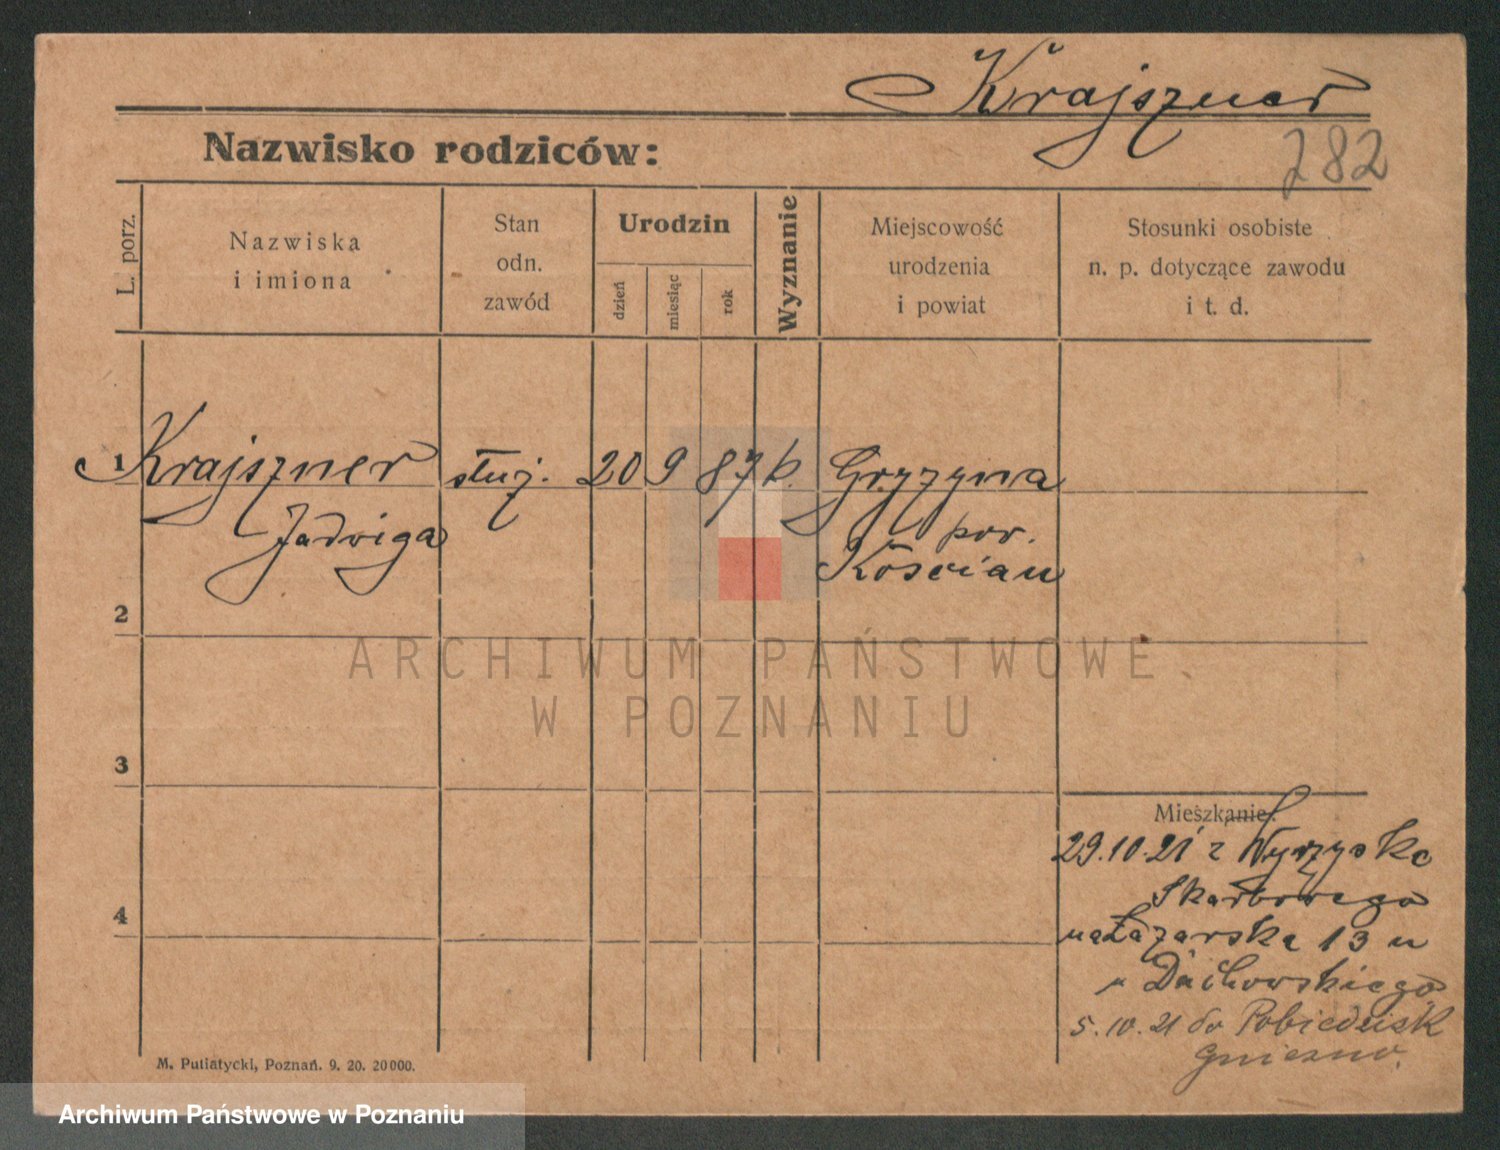 Krajszner
282
Nazwisko rodziców:
L. porz.
Nazwiska
i imiona
Stan
odn.
zawód
Urodzin
dzień
miesiąc
rok
Wyznanie
Miejscowość
urodzenia
i powiat
Stosunki osobiste
n. p. dotyczące zawodu
i t. d.
1 Krajszner służ. 20 9 87 k. Gryzyna
Jadwiga pow.
Kościan
2
ARCHIWUM PAŃSTWOWE
W POZNANIU
3
Mieszkanie:
29.10.21 z Wyrzyska
Skarbowego
na Łazarska 13 u
Dachowskiego
4
5.10.21 do Pobiedzisk
Gniezno.
M. Putiatycki, Poznań. 9. 20. 20000.
Archiwum Państwowe w Poznaniu